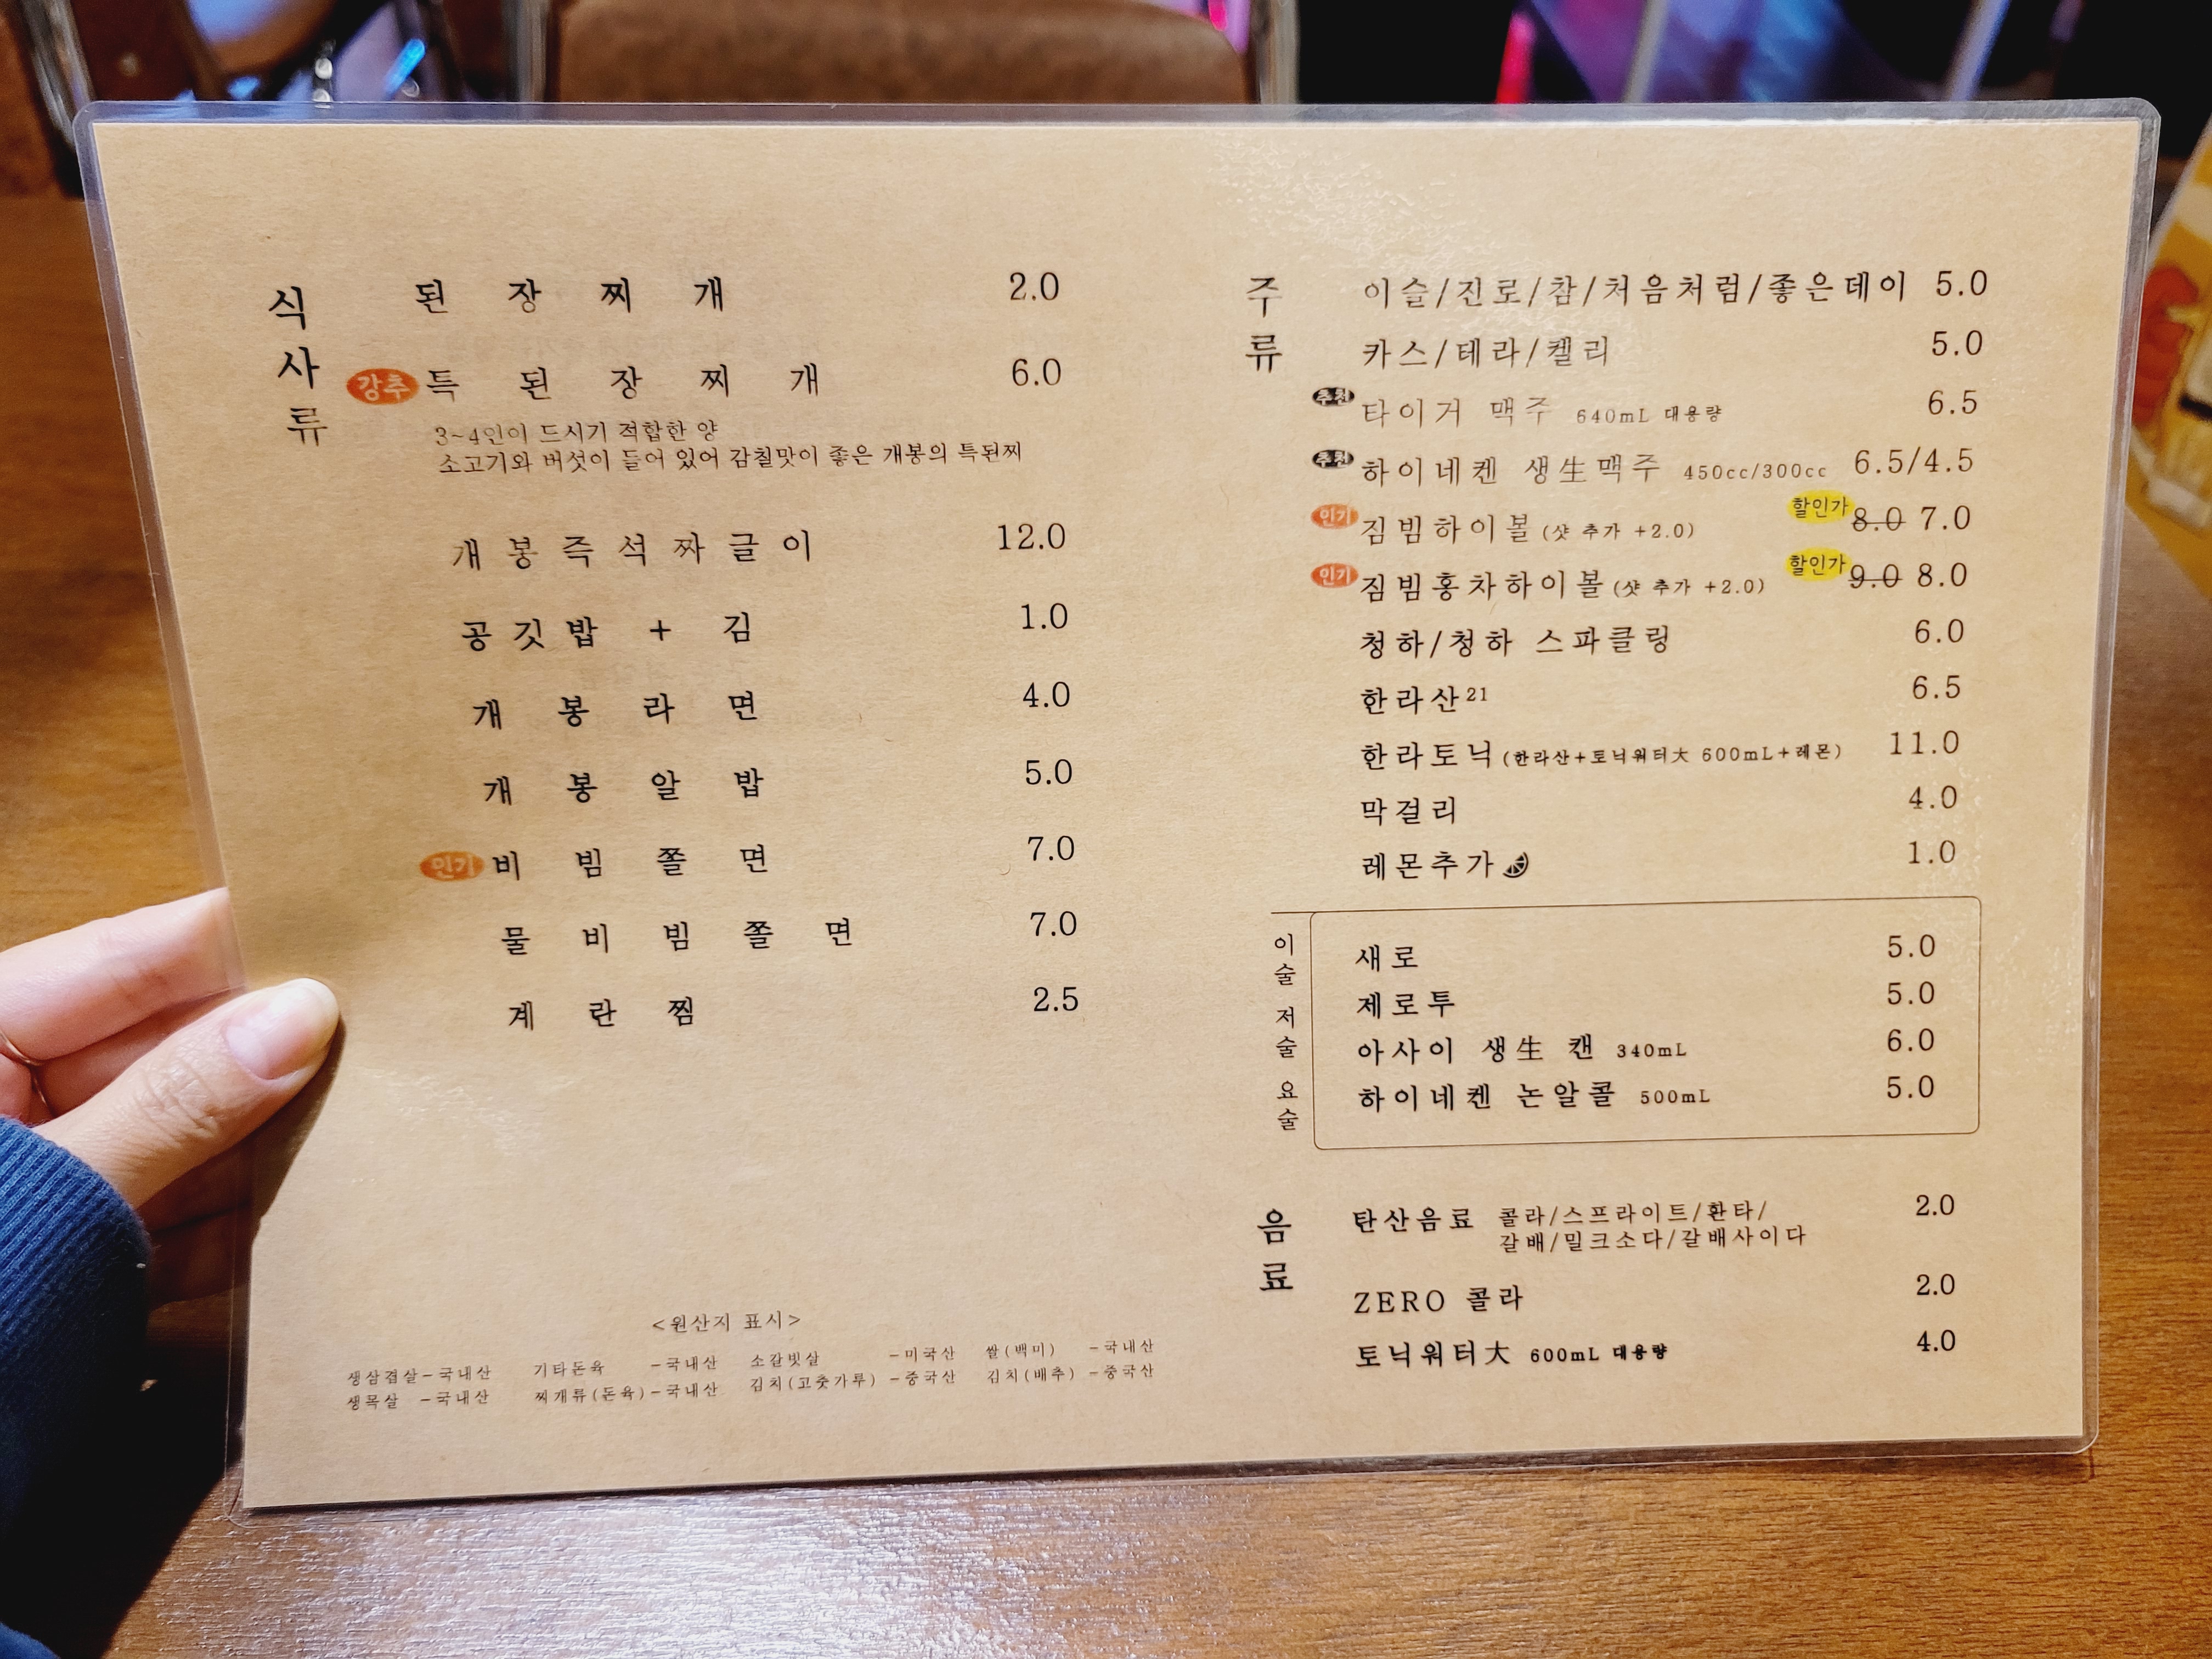 식사류
된장찌개 2.0
강추 특된장찌개 6.0
3~4인이 드시기 적합한 양
소고기와 버섯이 들어 있어 감칠맛이 좋은 개봉의 특된찌
개봉즉석짜글이 12.0
공깃밥 + 김 1.0
개봉라면 4.0
개봉알밥 5.0
인기 비빔쫄면 7.0
물비빔쫄면 7.0
계란찜 2.5
<원산지 표시>
생삼겹살-국내산 기타돈육 -국내산 소갈빗살 -미국산 쌀(백미) -국내산
생목살 -국내산 찌개류(돈육)-국내산 김치(고춧가루) -중국산 김치(배추) -중국산
주류
이슬/진로/참/처음처럼/좋은데이 5.0
카스/테라/켈리 5.0
추천 타이거 맥주 640mL 대용량 6.5
추천 하이네켄 생生맥주 450cc/300cc 6.5/4.5
인기 짐빔하이볼 (샷 추가 +2.0) 할인가 8.0 7.0
인기 짐빔홍차하이볼 (샷 추가 +2.0) 할인가 9.0 8.0
청하/청하 스파클링 6.0
한라산21 6.5
한라토닉 (한라산+토닉워터大 600mL+레몬) 11.0
막걸리 4.0
레몬추가 1.0
이술 저술 요술
새로 5.0
제로투 5.0
아사이 생生 캔 340mL 6.0
하이네켄 논알콜 500mL 5.0
음료
탄산음료 콜라/스프라이트/환타/ 2.0
갈배/밀크소다/갈배사이다
ZERO 콜라 2.0
토닉워터大 600mL 대용량 4.0